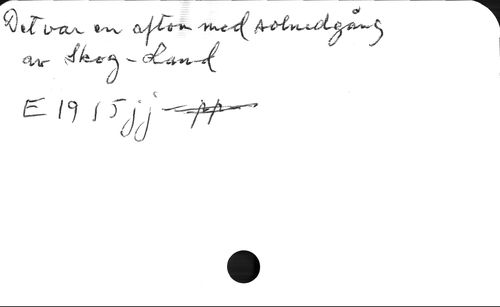 Det var en afton med solnedgång
av Skog-Land
E 1915 jj